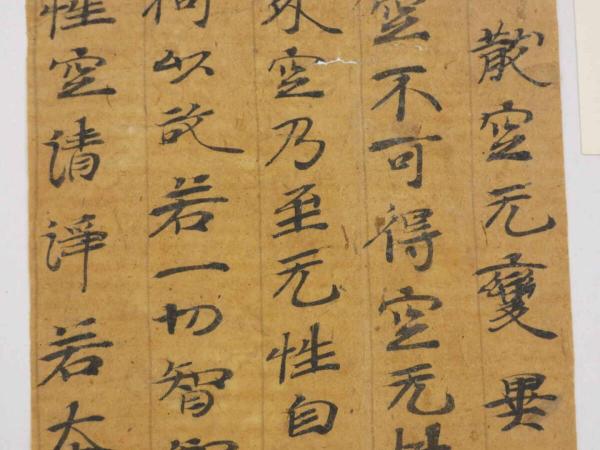 散空无變異
空不可得空无性
外空乃至无性自
何以故若一切智智
性空清淨若大